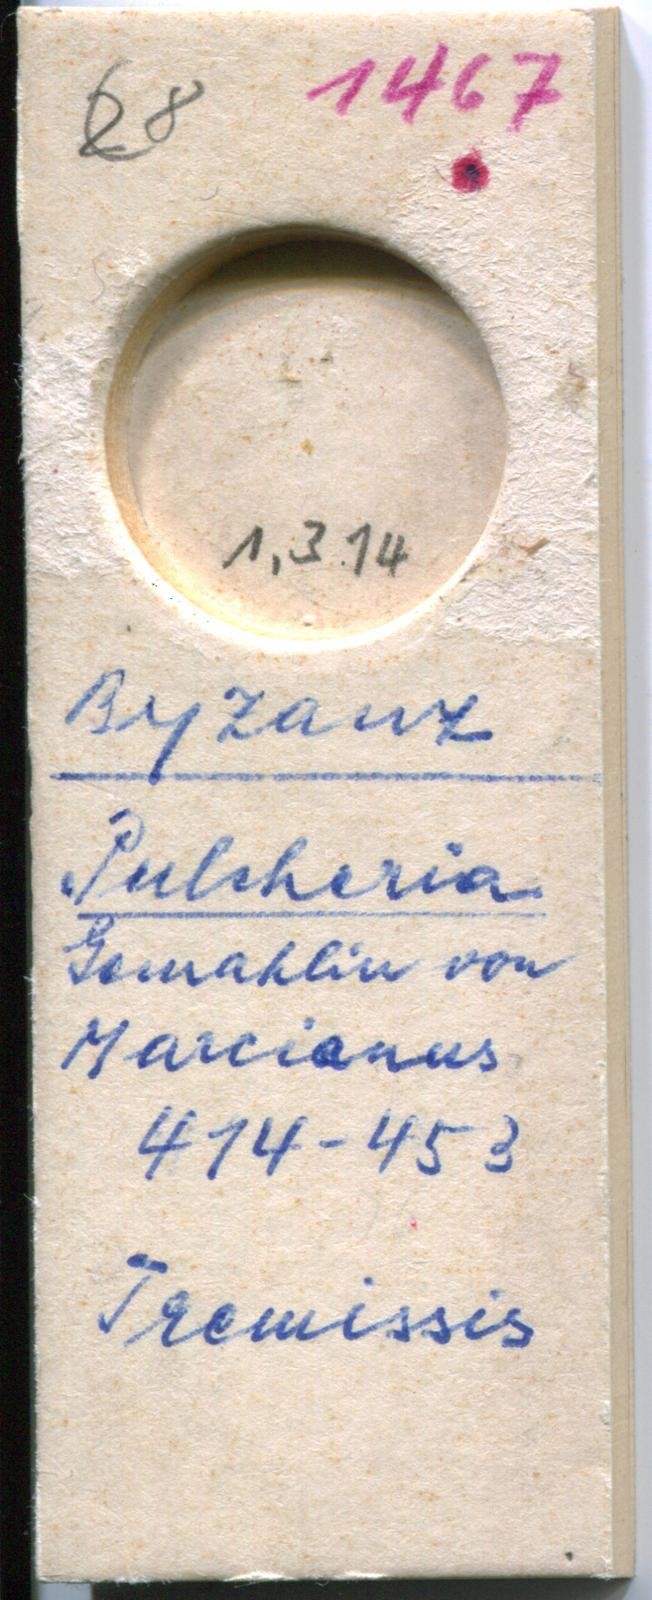 68 1467
1,3.14
Byzanz
Pulcheria
Gemahlin von
Marcianus
414-453
Tremissis